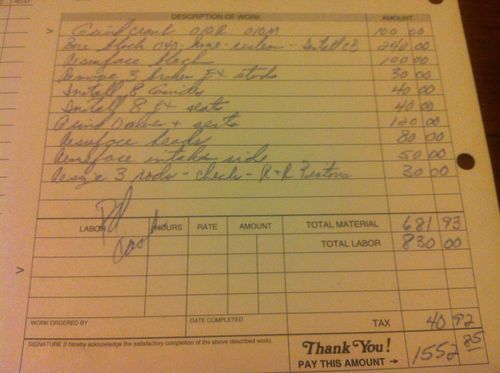 DESCRIPTION OF WORK AMOUNT
Grind crank 010R 010M 100 00
Bore block 040 - hone - - Install CB 240 00
Resurface block 100 00
Remove 3 broken Ex studs 30 00
Install 8 Guides 40 00
Install 8 Ex seats 40 00
Grind valves + seats 120 00
Resurface heads 80 00
Resurface intake side 50 00
Resize 3 rods - check - R+R Pistons 30 00
LABOR HOURS RATE AMOUNT TOTAL MATERIAL 681 93
TOTAL LABOR 830 00
Pd
cash
WORK ORDERED BY DATE COMPLETED TAX 40 92
SIGNATURE (I hereby acknowledge the satisfactory completion of the above described work).
Thank You!
PAY THIS AMOUNT → 1552 85